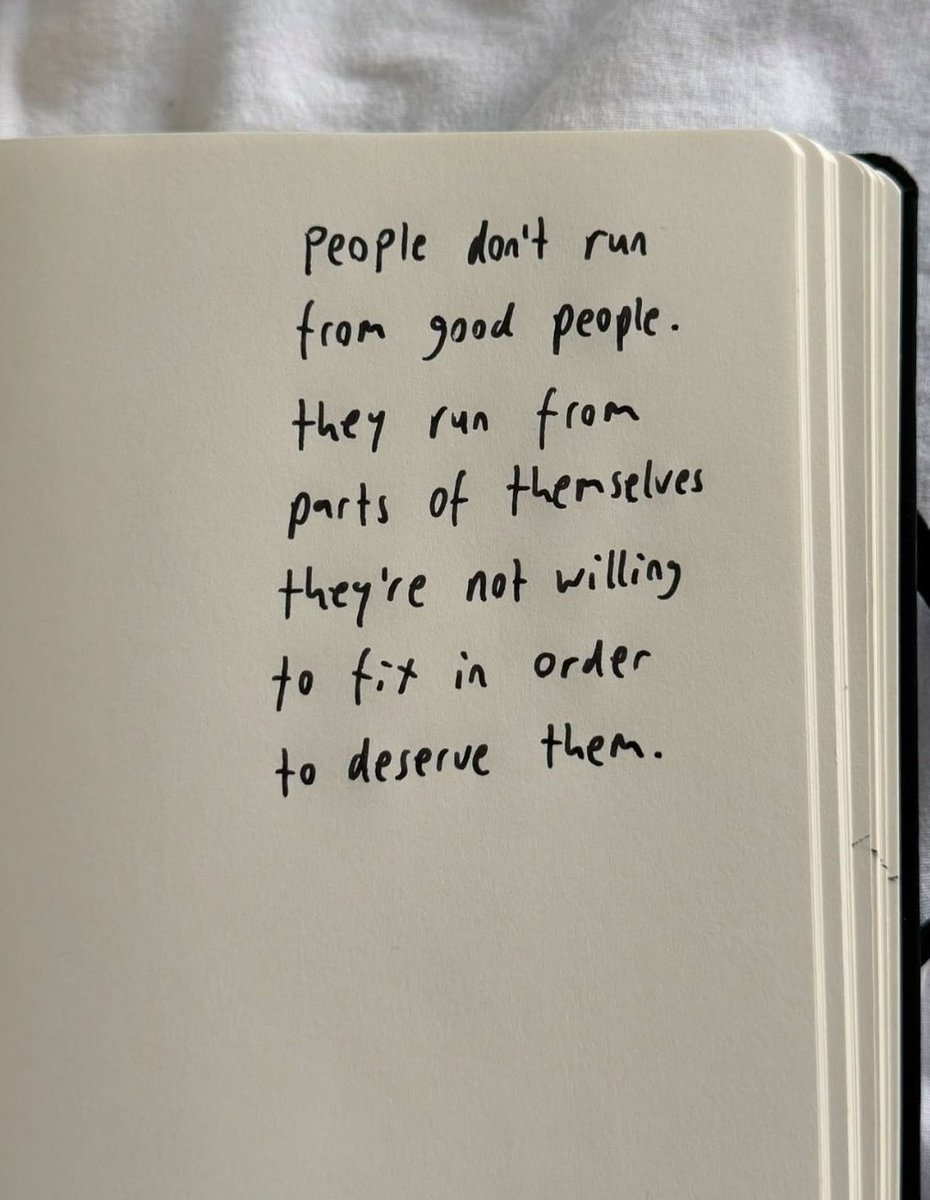 people don't run
from good people.
they run from
parts of themselves
they're not willing
to fix in order
to deserve them.